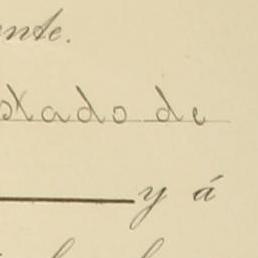 ente.
stado de
y á